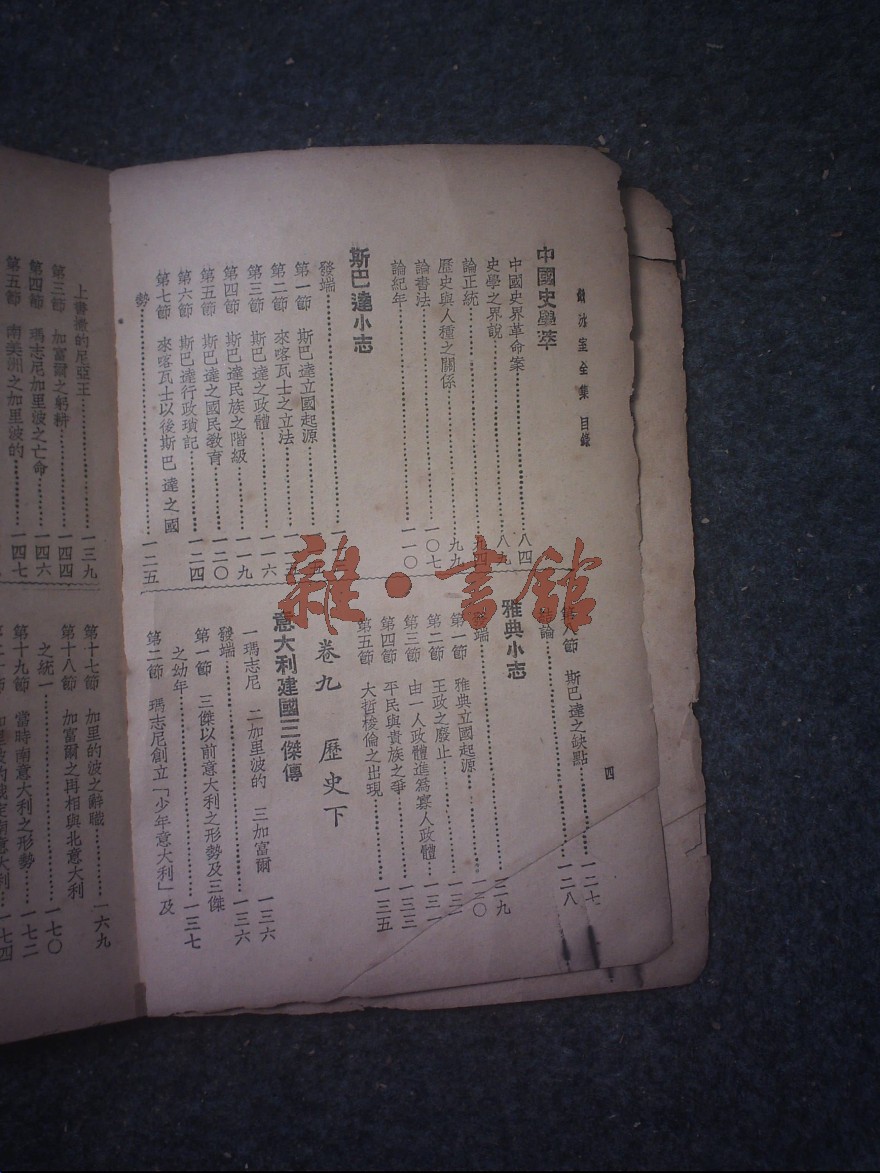 飲冰室全集 目錄
四
中國史學萃
中國史界革命案……八四
史學之界說……八九
論正統……九四
歷史與人種之關係……九九
論書法……一〇七
論紀年……一一〇
斯巴達小志
發端……
第一節 斯巴達立國起源……
第二節 來喀瓦士之立法……
第三節 斯巴達之政體……一一六
第四節 斯巴達民族之階級……一一九
第五節 斯巴達之國民教育……一二〇
第六節 斯巴達行政瑣記……一二四
第七節 來喀瓦士以後斯巴達之國
勢……一二五
第八節 斯巴達之缺點……一二七
結論……一二八
雅典小志
發端……一三〇
第一節 雅典立國起源……
第二節 王政之廢止……一三一
第三節 由一人政體進為寡人政體……
第四節 平民與貴族之爭……一三三
第五節 大哲梭倫之出現……一三五
卷九 歷史下
意大利建國三傑傳
一瑪志尼 二加里波的 三加富爾 一三六
發端……一三六
第一節 三傑以前意大利之形勢及三傑
之幼年……一三七
第二節 瑪志尼創立「少年意大利」及
上書撒的尼亞王……一三九
第三節 加富爾之躬耕……一四四
第四節 瑪志尼加里波之亡命……一四六
第五節 南美洲之加里波的……一四七
第十七節 加里的波之辭職……一六九
第十八節 加富爾之再相與北意大利
之統一……一七〇
第十九節 當時南意大利之形勢……一七二
雜·書館